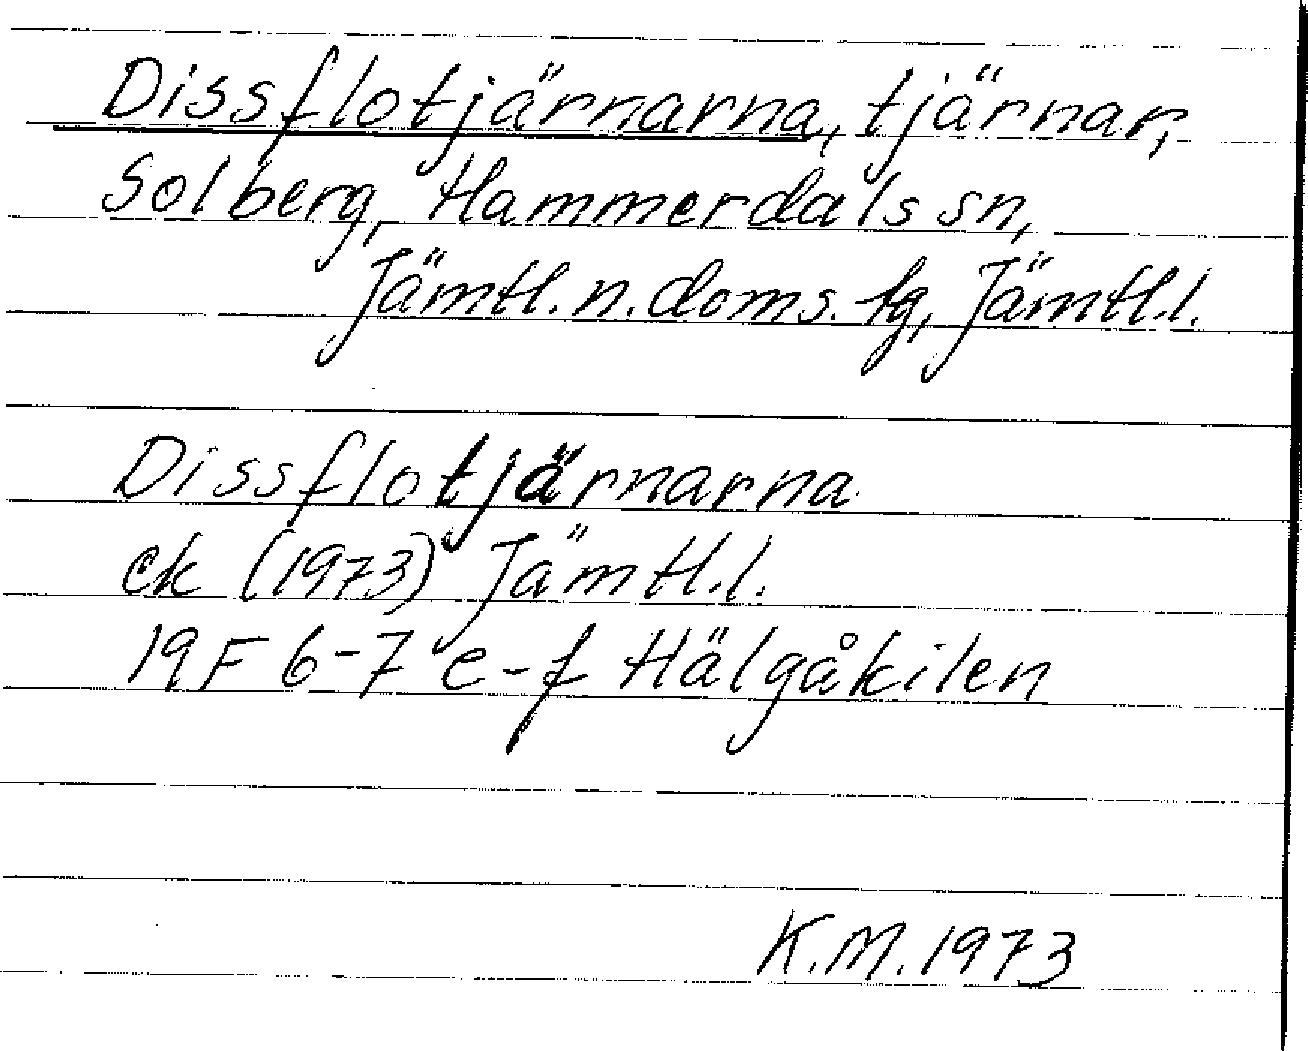 Dissflotjärnarna, tjärnar,
Solberg, Hammerdals sn,
Jämtl. n. doms. tg, Jämtl. l.
Dissflotjärnarna
ek (1973) Jämtl. l.
19F 6-7 e-f Hälgåkilen
K.M. 1973